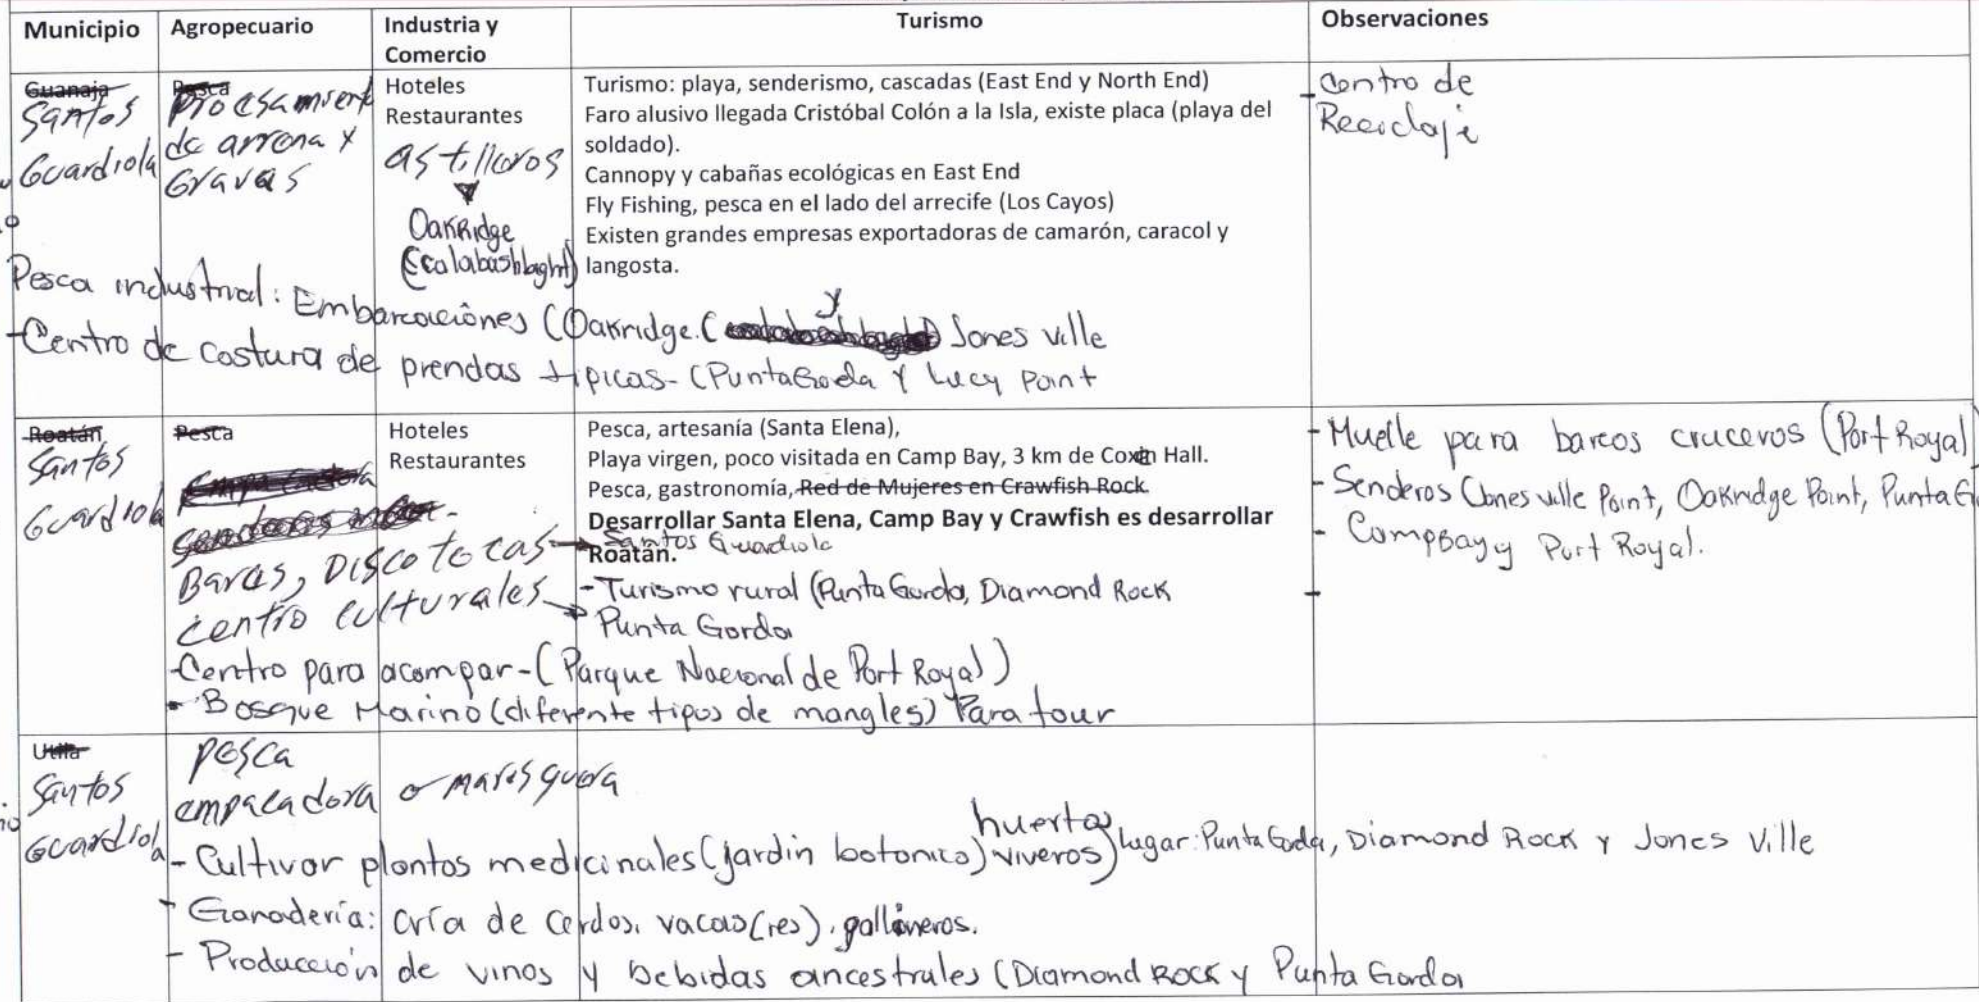 Municipio
Agropecuario
Industria y
Comercio
Turismo
Observaciones
Guanaja
Santos
Guardiola
Pesca
procesamient
de arrena y
Gravas
Hoteles
Restaurantes
astilleros
OakRidge
Turismo: playa, senderismo, cascadas (East End y North End)
Faro alusivo llegada Cristóbal Colón a la Isla, existe placa (playa del
soldado).
Cannopy y cabañas ecológicas en East End
Fly Fishing, pesca en el lado del arrecife (Los Cayos)
Existen grandes empresas exportadoras de camarón, caracol y
langosta.
- Centro de
Reciclaje
Pesca industrial: Embarcaciones (Oakridge y Jones ville
- Centro de costura de prendas tipicas- (Punta Goda Y Lucy Point
Roatán
Santos
Guardiola
Pesca
Bares, Discotecas
centro culturales
Hoteles
Restaurantes
Pesca, artesanía (Santa Elena),
Playa virgen, poco visitada en Camp Bay, 3 km de Coxen Hall.
Pesca, gastronomía, Red de Mujeres en Crawfish Rock
Desarrollar Santa Elena, Camp Bay y Crawfish es desarrollar
Santos Guardiola
Roatán.
- Turismo rural (Punta Gorda, Diamond Rock
Punta Gorda
- Centro para acampar - (Parque Nacional de Port Royal)
- Bosque Marino (diferente tipos de mangles) Para tour
- Muelle para barcos cruceros (Port Royal)
- Senderos (Jones ville Point, Oakridge Point, Punta G
- CampBay y Port Royal.
-
Utila
Santos
Guardiola
pesca
empacadora o maresquera
- Cultivar plantas medicinales (jardin botonico) huertas viveros) lugar: Punta Goda, Diamond Rock Y Jones Ville
- Ganadería: cría de cerdos, vacas (res), gallineros.
- Producción de vinos y bebidas ancestrales (Diamond Rock y Punta Gorda